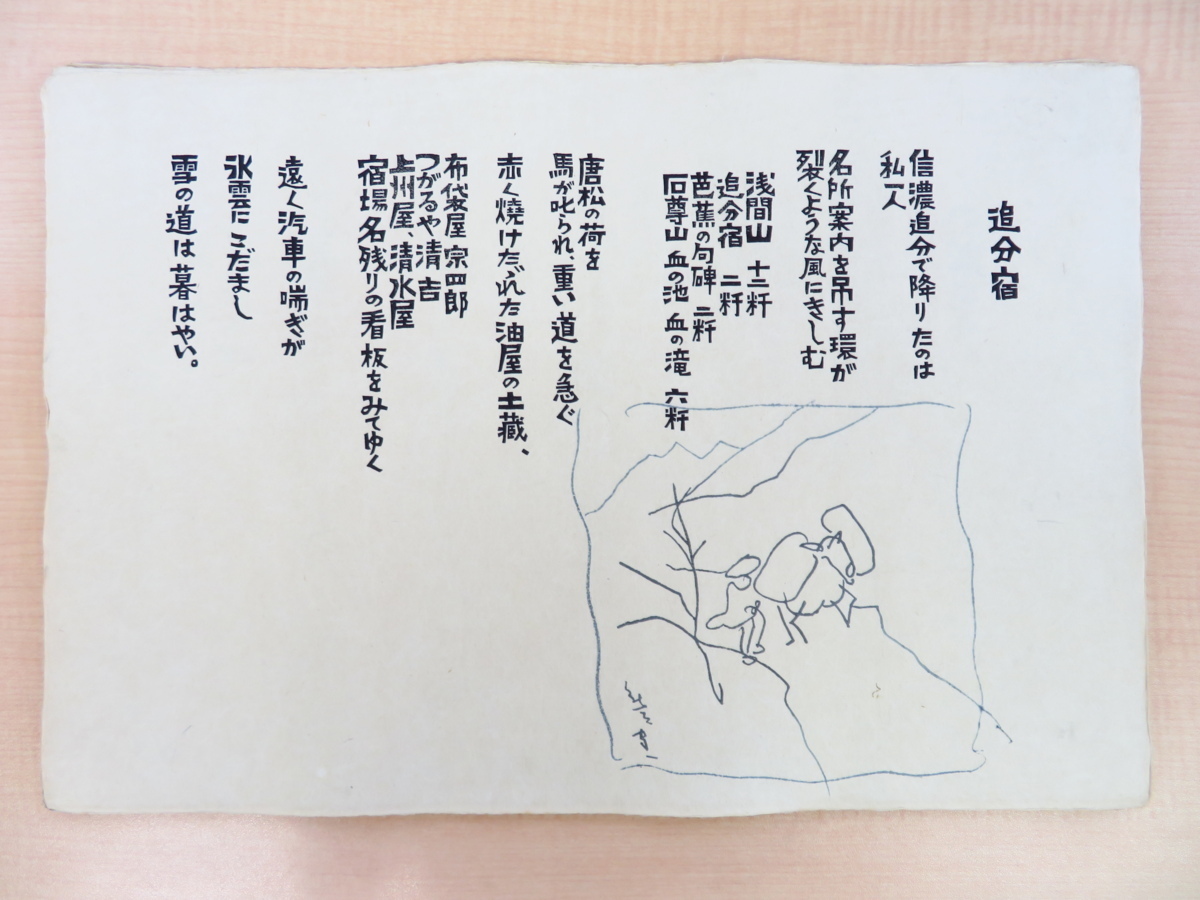 追分宿
信濃追分で降りたのは
私一人
名所案内を吊す環が
裂くような風にきしむ
浅間山 十二粁
追分宿 二粁
芭蕉の句碑 二粁
石尊山 血の池 血の滝 六粁
唐松の荷を
馬が叱られ、重い道を急ぐ
赤く燒けたゞれた油屋の土蔵、
布袋屋 宗四郎
つがるや 清吉
上州屋、清水屋
宿場名残りの看板をみてゆく
遠く汽車の喘ぎが
氷雲にこだまし
雪の道は暮はやい。